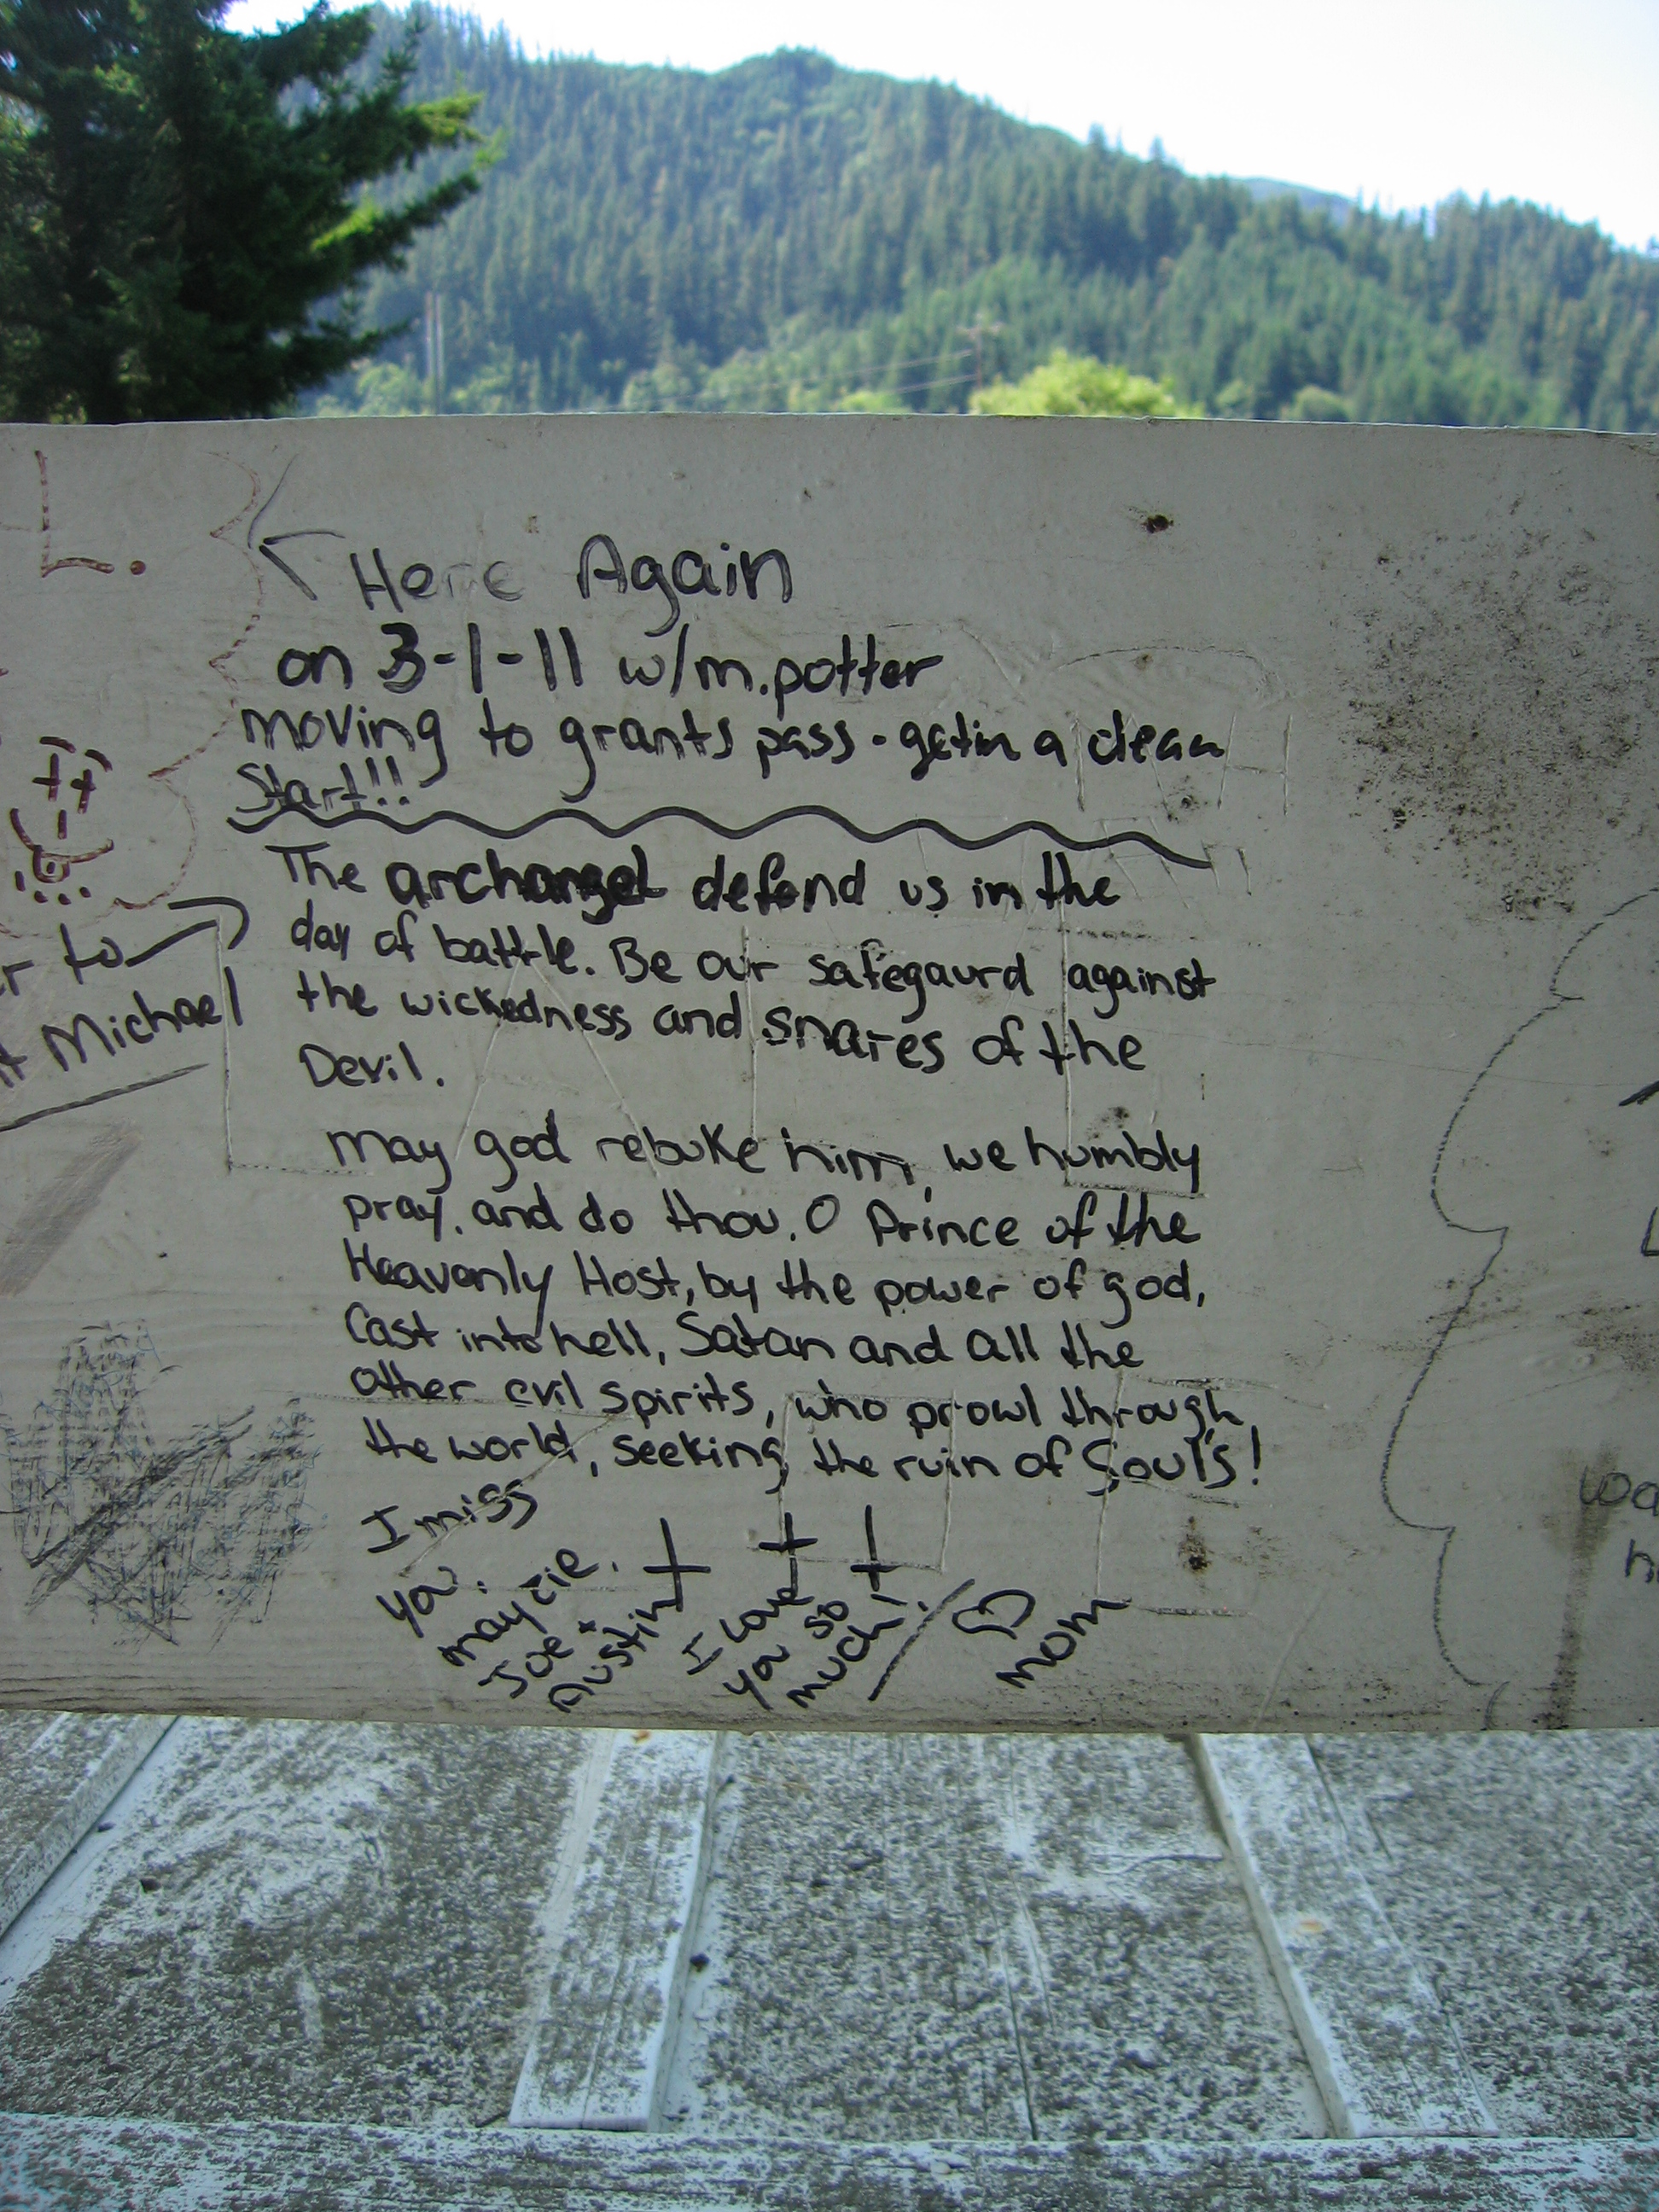 L.
Here Again
on 3-1-11 w/m.potter
moving to grants pass - getin a clean
Start!!
The archangel defend us in the
day of battle. Be our safegaurd against
the wickedness and snares of the
Devil.
to
Michael
may god rebuke him, we humbly
pray. and do thou. O Prince of the
Heavenly Host, by the power of god,
Cast into hell, Satan and all the
other evil spirits, who prowl through
the world, seeking the ruin of Soul's!
I miss
you.
may
Joe +
Austin
I love
you so
much!
mom